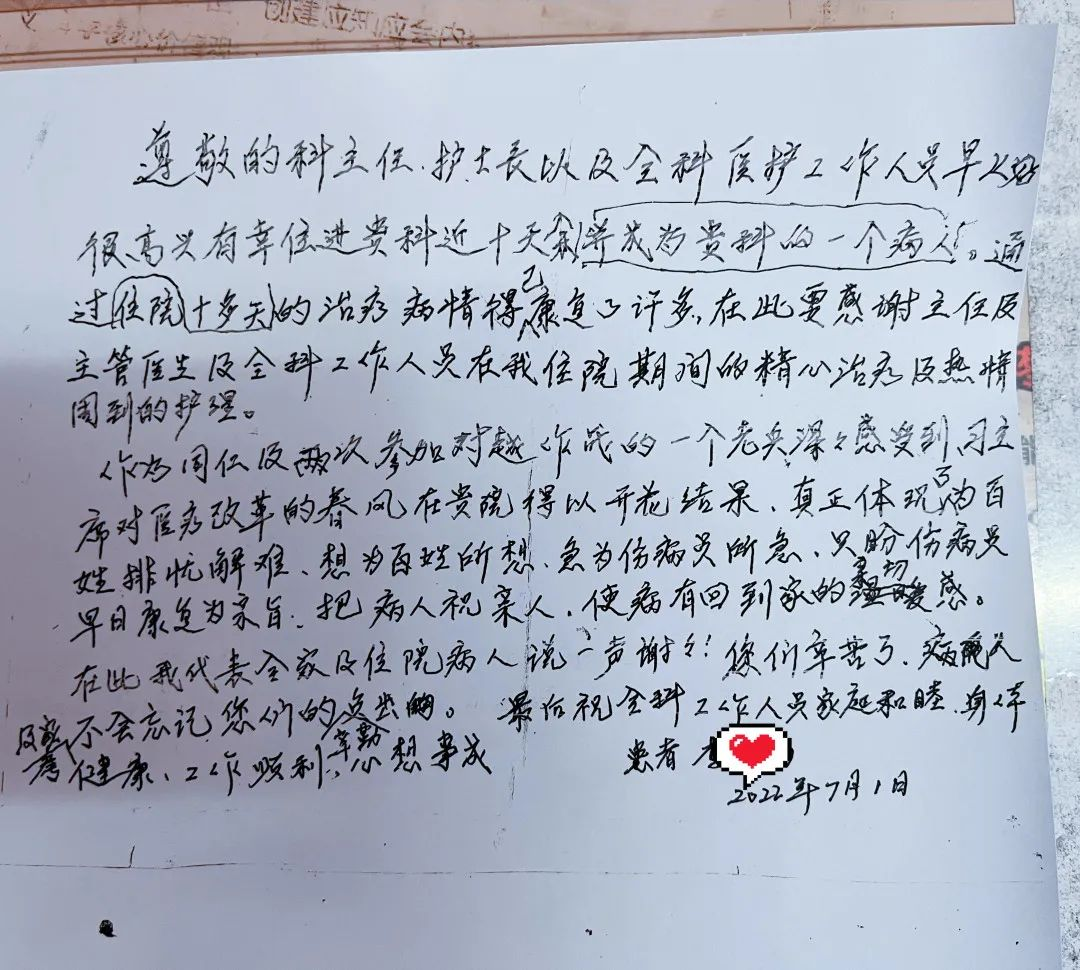 创建应知应会内
尊敬的科主任、护士长以及全科医护工作人员早上好
很高兴有幸住进贵科近十天 并成为贵科的一个病人。通
过住院十多天的治疗病情得已康复了许多,在此要感谢主任及
主管医生及全科工作人员在我住院期间的精心治疗及热情
周到的护理。
作为同仁及两次参加对越作战的一个老兵深々感受到习主
席对医疗改革的春风在贵院得以开花结果、真正体现了为百
姓排忧解难、想为百姓所想、急为伤病员所急、只盼伤病员
早日康复为宗旨、把病人视亲人、使病有回到家的亲切感。
在此我代表全家及住院病人说一声谢々!您们辛苦了、病人
及家属不会忘记您们的辛勤。最后祝全科工作人员家庭和睦、身体
健康、工作顺利、心想事成
患者 李
2022年7月1日